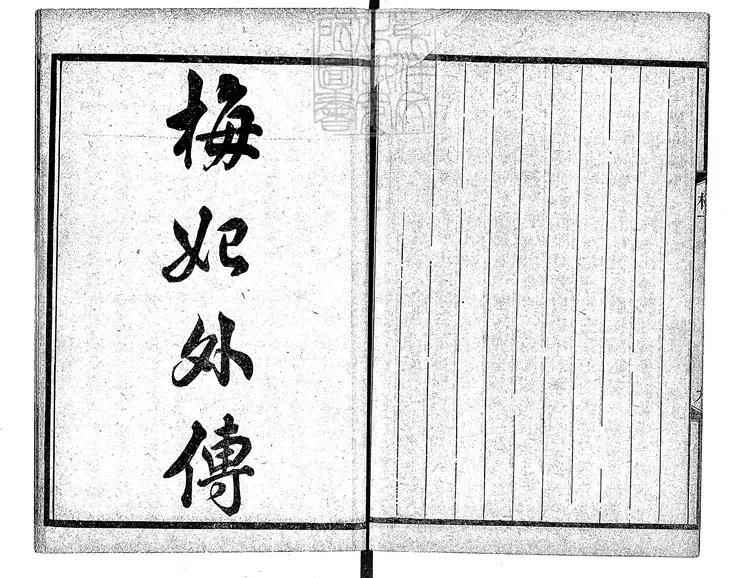 梅妃外傳